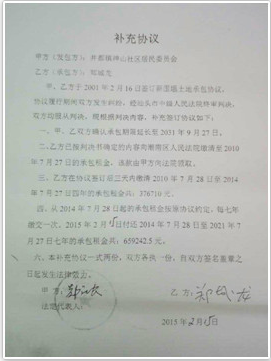 补充协议
甲方（发包方）：井都镇神山社区居民委员会
乙方（承包方）：郑城龙
甲、乙方于 2001 年 2 月 16 日签订新围镇土地承包协议，
协议履行期间双方发生纠纷，经汕头市中级人民法院终审判决，
双方均服从判决，现根据判决内容，补充签订协议如下：
一、甲、乙双方确认承包期限延长至 2031 年 9 月 27 日。
二、乙方已按判决书确定的内容向潮南区人民法院缴清至 2010
年 7 月 27 日的承包租金，该款由甲方向法院领取。
三、乙方在协议签订后三天内缴清 2010 年 7 月 28 日至 2014
年 7 月 27 日四年的承包租金共：376710 元。
四、从 2014 年 7 月 28 日起的承包租金按原协议约定，每七年
缴交一次，2015 年 2 月 15 日付还 2014 年 7 月 28 日至 2021 年 7
月 27 日七年的承包租金共：659242.5 元。
六、本补充协议一式两份，双方各执一份，自双方签名盖章之
日起发生法律效力。
甲方：
乙方：郑城龙
法定代表人：
2015 年 2 月 15 日